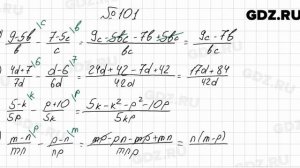 №101
GDZ.RU
9-5b/b - 7-5c/c = 9c-5bc-7b+5bc/bc = 9c-7b/bc
4d+7/7d - d-6/6d = 24d+42-7d+42/42d = 17d+84/42d
5-k/5p - p+10/5k = 5k-k²-p²-10p/5pk
m-n/mn - p-n/np = mp-pn-mp+mn/mnp = n(m-p)
GDZ.RU